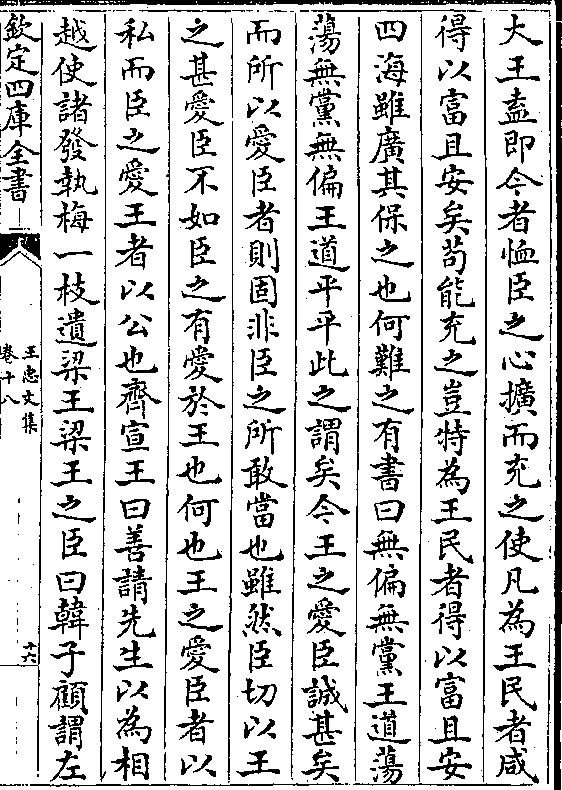 大王盍即今者恤臣之心擴而充之使凡為王民者咸
得以富且安矣苟能充之豈特為王民者得以富且安
四海雖廣其保之也何難之有書曰無偏無黨王道蕩
蕩無黨無偏王道平平此之謂矣今王之愛臣誠甚矣
而所以愛臣者則固非臣之所敢當也雖然臣切以王
之甚愛臣不如臣之有愛於王也何也王之愛臣者以
私而臣之愛王者以公也齊宣王曰善請先生以為相
越使諸發執梅一枝遺梁王梁王之臣曰韓子顧謂左
欽定四庫全書
王忠文集
卷十八
十六